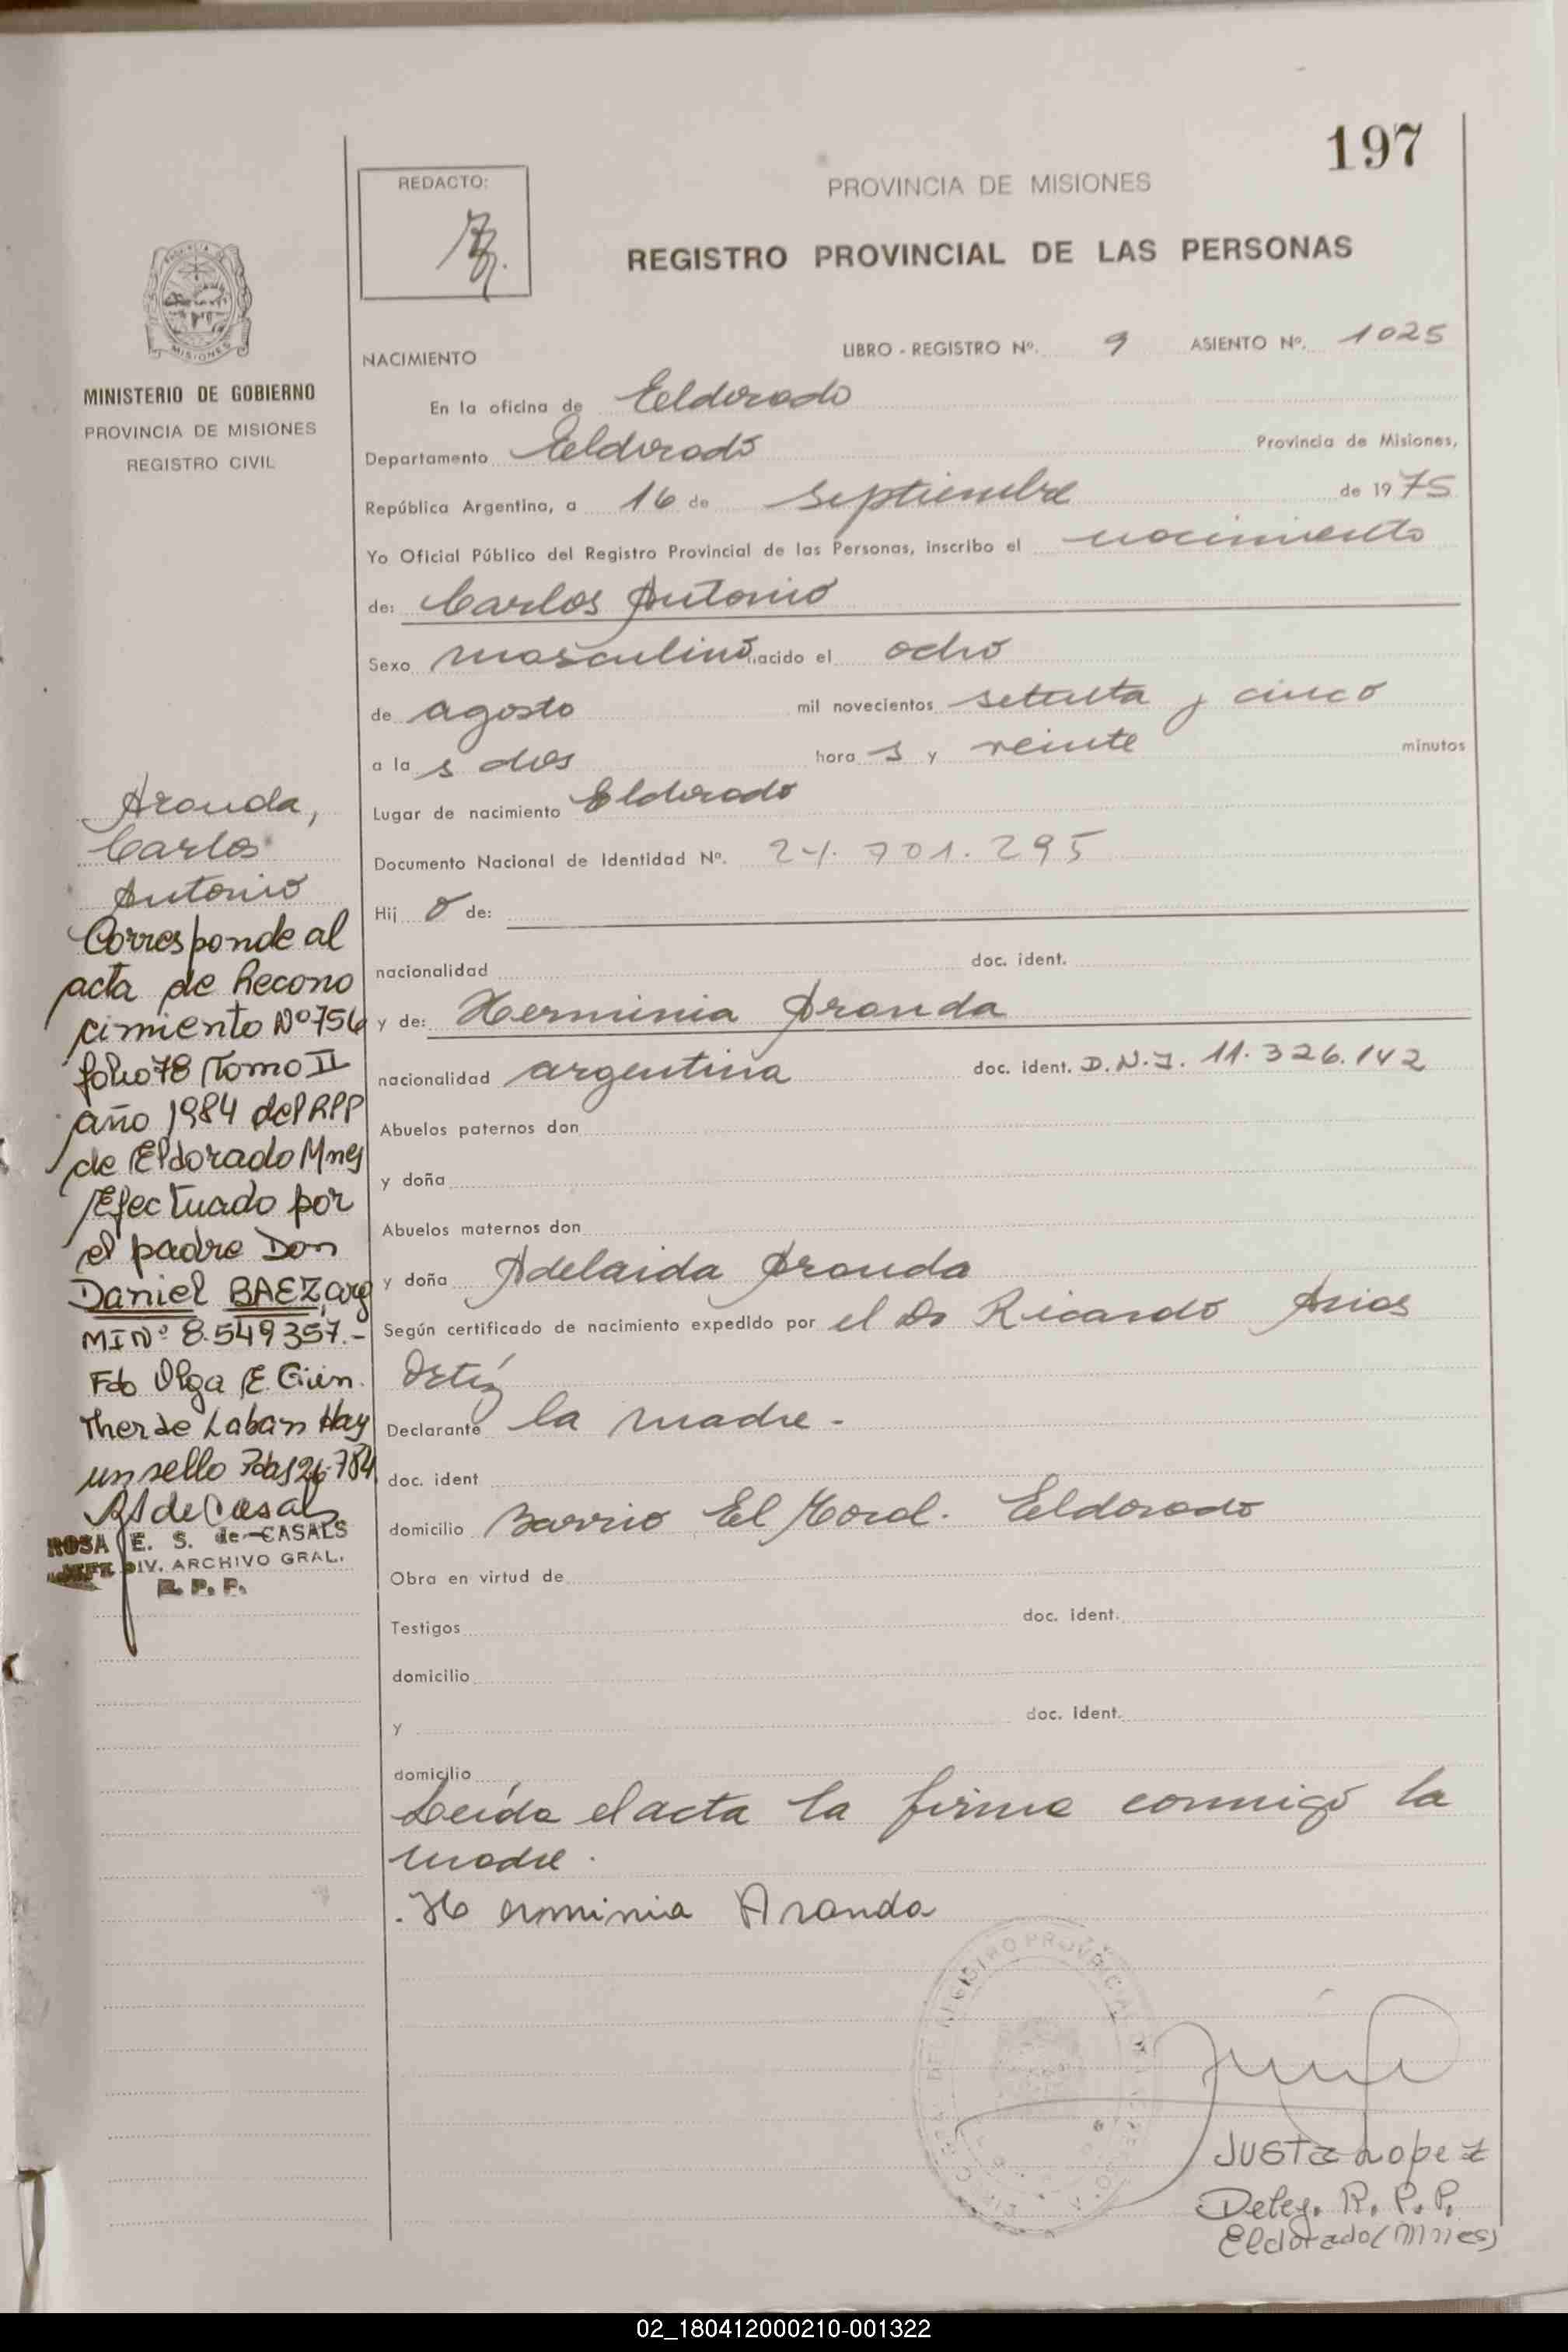 197
REDACTO:
PROVINCIA DE MISIONES
REGISTRO PROVINCIAL DE LAS PERSONAS
MISIONES
MINISTERIO DE GOBIERNO
PROVINCIA DE MISIONES
REGISTRO CIVIL
NACIMIENTO
LIBRO - REGISTRO Nº. 9 ASIENTO Nº. 1025
En la oficina de Eldorado
Departamento Eldorado Provincia de Misiones,
República Argentina, a 16 de septiembre de 1975
Yo Oficial Público del Registro Provincial de las Personas, inscribo el nacimiento
de: Carlos Antonio
Sexo masculino nacido el ocho
de agosto mil novecientos setenta y cinco
a la s dos hora s y veinte minutos
Lugar de nacimiento Eldorado
Documento Nacional de Identidad Nº. 24.701.295
Hij o de:
nacionalidad doc. ident.
y de: Herminia Aranda
nacionalidad argentina doc. ident. D.N.I. 11.326.142
Abuelos paternos don
y doña
Abuelos maternos don
y doña Adelaida Aranda
Según certificado de nacimiento expedido por el Dr Ricardo Arios
Ortíz
Declarante la madre -
doc. ident
domicilio Barrio El Eldorado
Obra en virtud de
Testigos doc. ident.
domicilio
y doc. ident.
domicilio
Leída el acta la firma conmigo la
madre.
Herminia Aranda
Aranda,
Carlos
Antonio
Corresponde al
acta de Recono
cimiento Nº 756
folio 78 Tomo II
año 1984 del RPP
de Eldorado Mnes
Efectuado por
el padre Don
Daniel BAEZ, arg
MI Nº 8.549357.-
Fdo Olga E. Gün.
Ther de Laban Hay
un sello Pdas 26-784
RS de Casals
ROSA E. S. de CASALS
JEFE DIV. ARCHIVO GRAL.
R. P. P.
REGISTRO PROVINCIAL
Justa Lopez
Deleg. R. P. P.
Eldorado (Mnes)
02_180412000210-001322